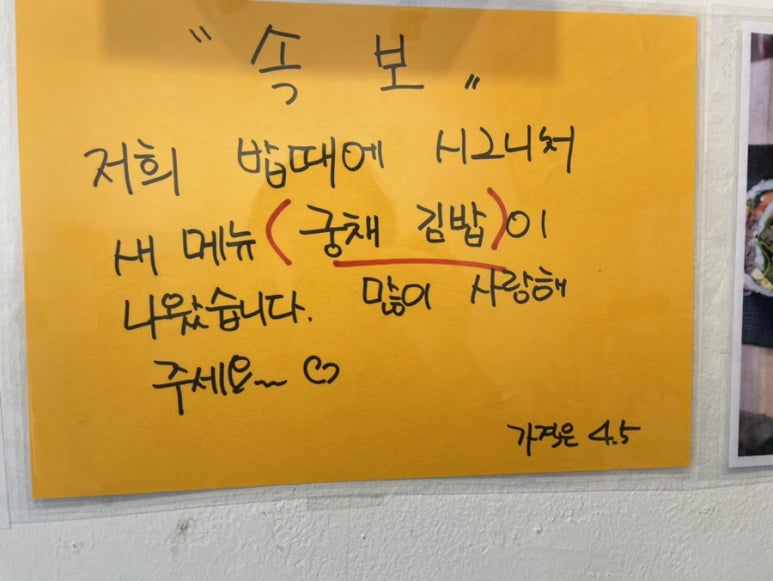 "속 보"
저희 밥때에 시그니처
새 메뉴 (궁채 김밥)이
나왔습니다. 많이 사랑해
주세요~ ♡
가격은 4.5